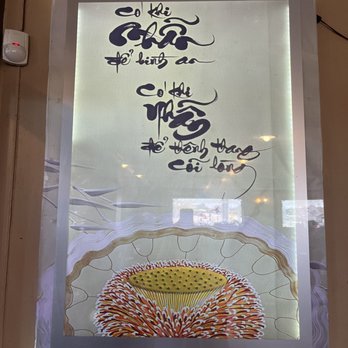 Có khi
Nhẫn
để bình an
Có khi
Nhẫn
để thênh thang
cõi lòng